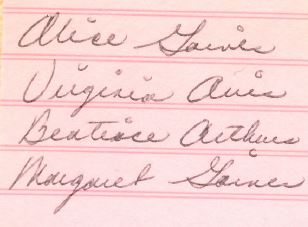 Alice Gaines
Virginia Avis
Beatrice Arthurs
Margaret Gaines